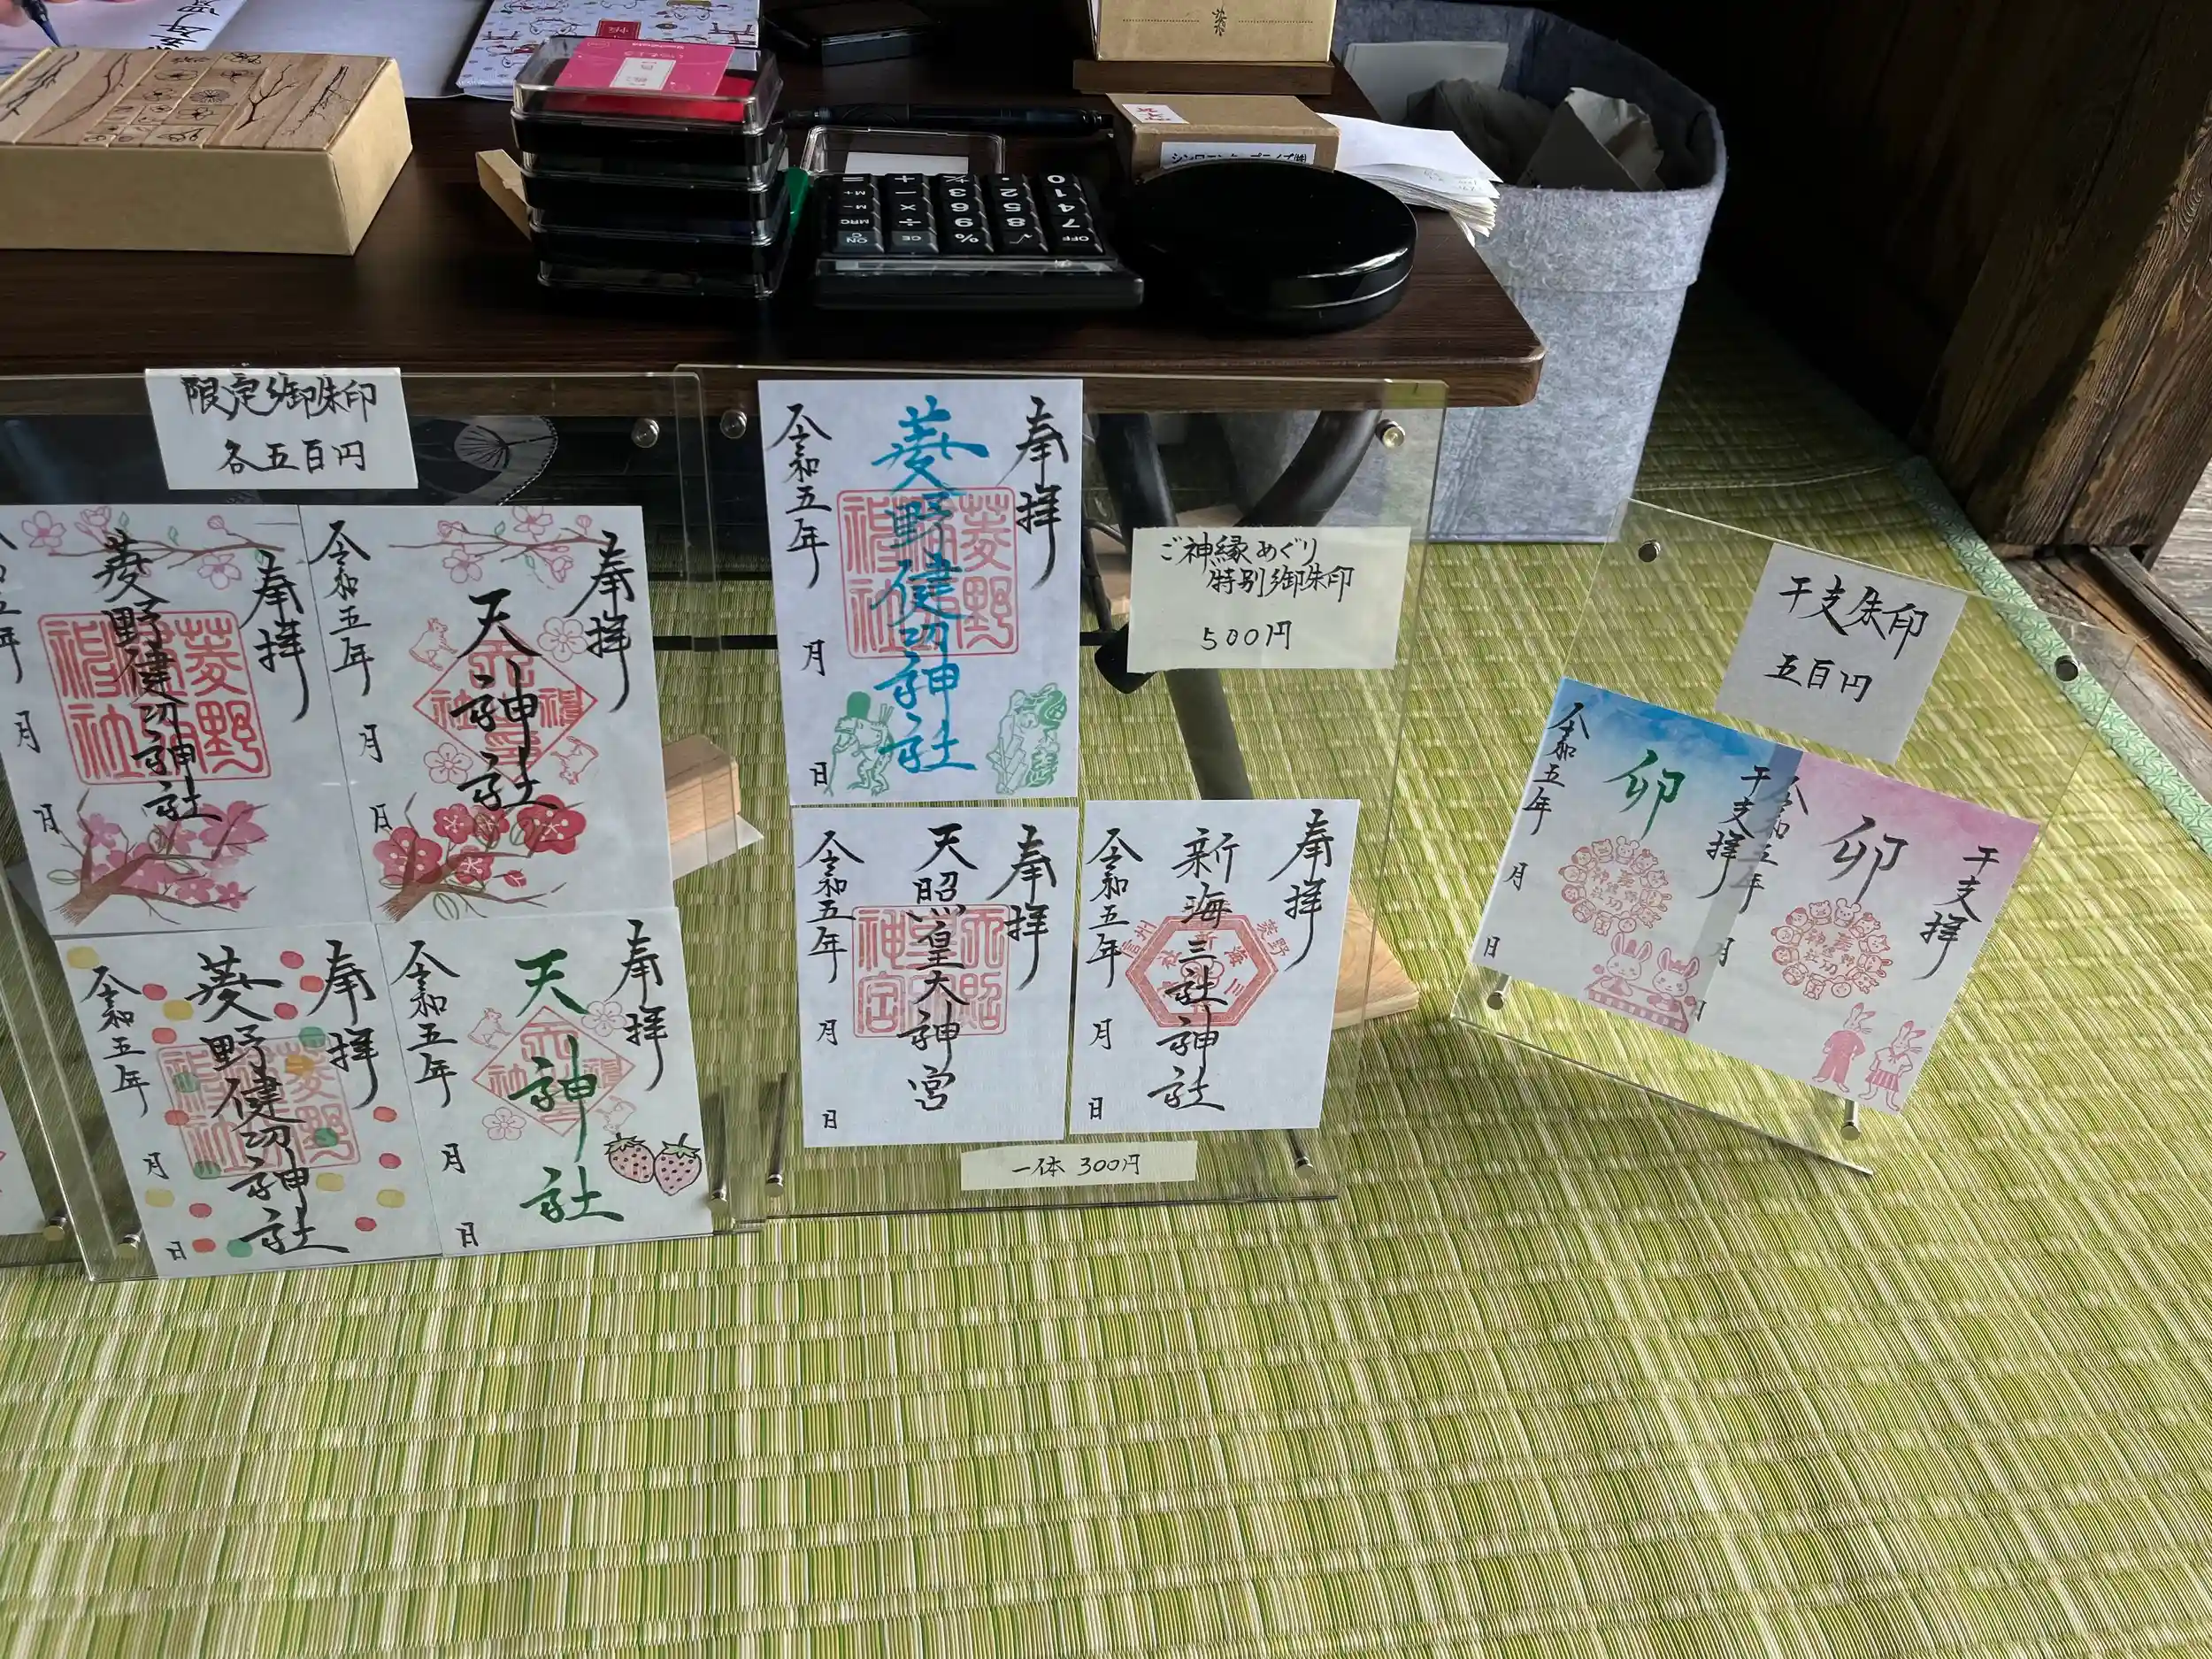 限定御朱印
各五百円
奉拝
菱野健功神社
月
日
奉拝
天神社
令和五年
月
日
奉拝
菱野健功神社
令和五年
月
日
奉拝
天神社
令和五年
月
日
奉拝
菱野健功神社
令和五年
月
日
ご神縁めぐり
特別御朱印
500円
奉拝
天照皇大神宮
令和五年
月
日
奉拝
新海三社神社
令和五年
月
日
一体 300円
干支朱印
五百円
干支拝
卯
令和五年
月
日
干支拝
卯
令和五年
月
日
OFF
7
4
1
0
√
8
5
2
%
9
6
3
CE
÷
×
−
+
ON
MRC
M−
M+